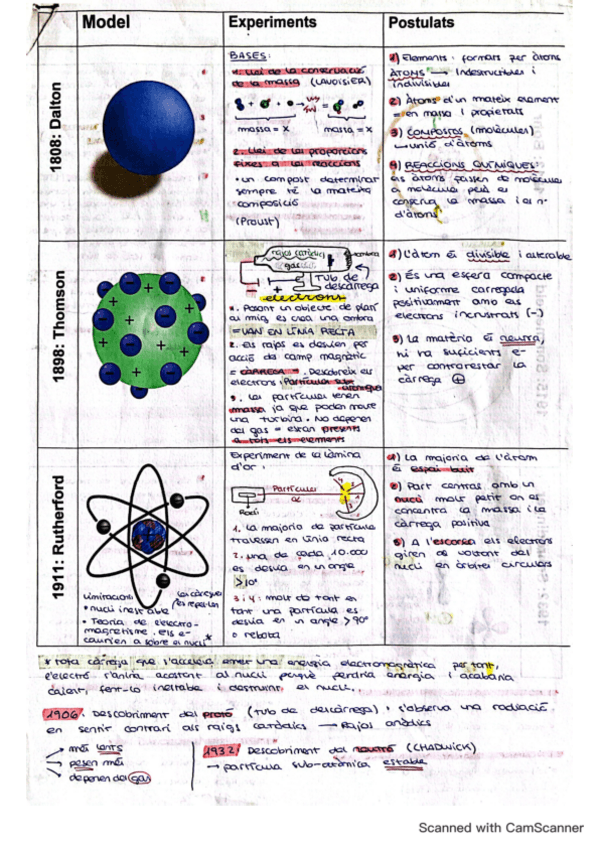 Model
Experiments
Postulats
1808: Dalton
BASES:
1. Llei de la conservació
de la massa (LAVOISIER)
massa = x massa = x
2. Llei de les proporcions
fixes a les reaccions
• un compost determinat
sempre té la mateixa
composició
(Proust)
1) Elements: formats per àtoms
ÀTOMS → Indestructibles i
indivisibles
2) Àtoms d'un mateix element
= en massa i propietats
3) COMPOSTOS (molècules)
unió d'àtoms
4) REACCIONS QUÍMIQUES:
els àtoms passen de molècula
a molècula però es
conserva la massa i el nº
d'àtoms
1898: Thomson
rajos catòdics
gas
ombra
Tub de
descàrrega
electrons
1. Posant un objecte de plan
al mig es crea una ombra
= VAN EN LÍNIA RECTA
2. Els rajos es desvien per
acció del camp magnètic
= CÀRREGA → Descobreix els
electrons: Partícules sub-
atòmiques
3. Les partícules tenen
massa ja que poden moure
una turbina. No depenen
del gas = estan presents
a tots els elements
1) L'àtom és divisible i alterable
2) És una esfera compacte
i uniforme carregada
positivament amb els
electrons incrustats (-)
3) La matèria és neutra,
hi ha suficients e-
per contrarestar la
càrrega +
1911: Rutherford
Limitacions:
• nucli inestable
les càrregues
es repel·len
• Teoria de l'electro-
magnetisme. els e-
caurien a sobre el nucli *
Experiment de la làmina
d'or:
Partícules
α
Radi
1. La majoria de partícules
travessen en línia recta
2. una de cada 10.000
es desvia en un angle
>10º
3 i 4: molt de tant en
tant una partícula es
desvia en un angle >90º
o rebota
1) La majoria de l'àtom
és espai buit
2) Part central amb un
nucli molt petit on es
concentra la massa i la
càrrega positiva
3) A l'escorça els electrons
giren al voltant del
nucli en òrbites circulars
* tota càrrega que s'accelera emet una energia electromagnètica per tant,
l'electró s'aniria acostant al nucli perquè perdria energia i acabaria
caient, fent-lo inestable i destruint el nucli.
1906: Descobriment del protó (tub de descàrrega), s'observa una radiació
en sentit contrari als raigs catòdics → Rajos anòdics
més lents
pesen més
depenen del gas
1932: Descobriment del neutró (CHADWICK)
→ partícula sub-atòmica estable
Scanned with CamScanner